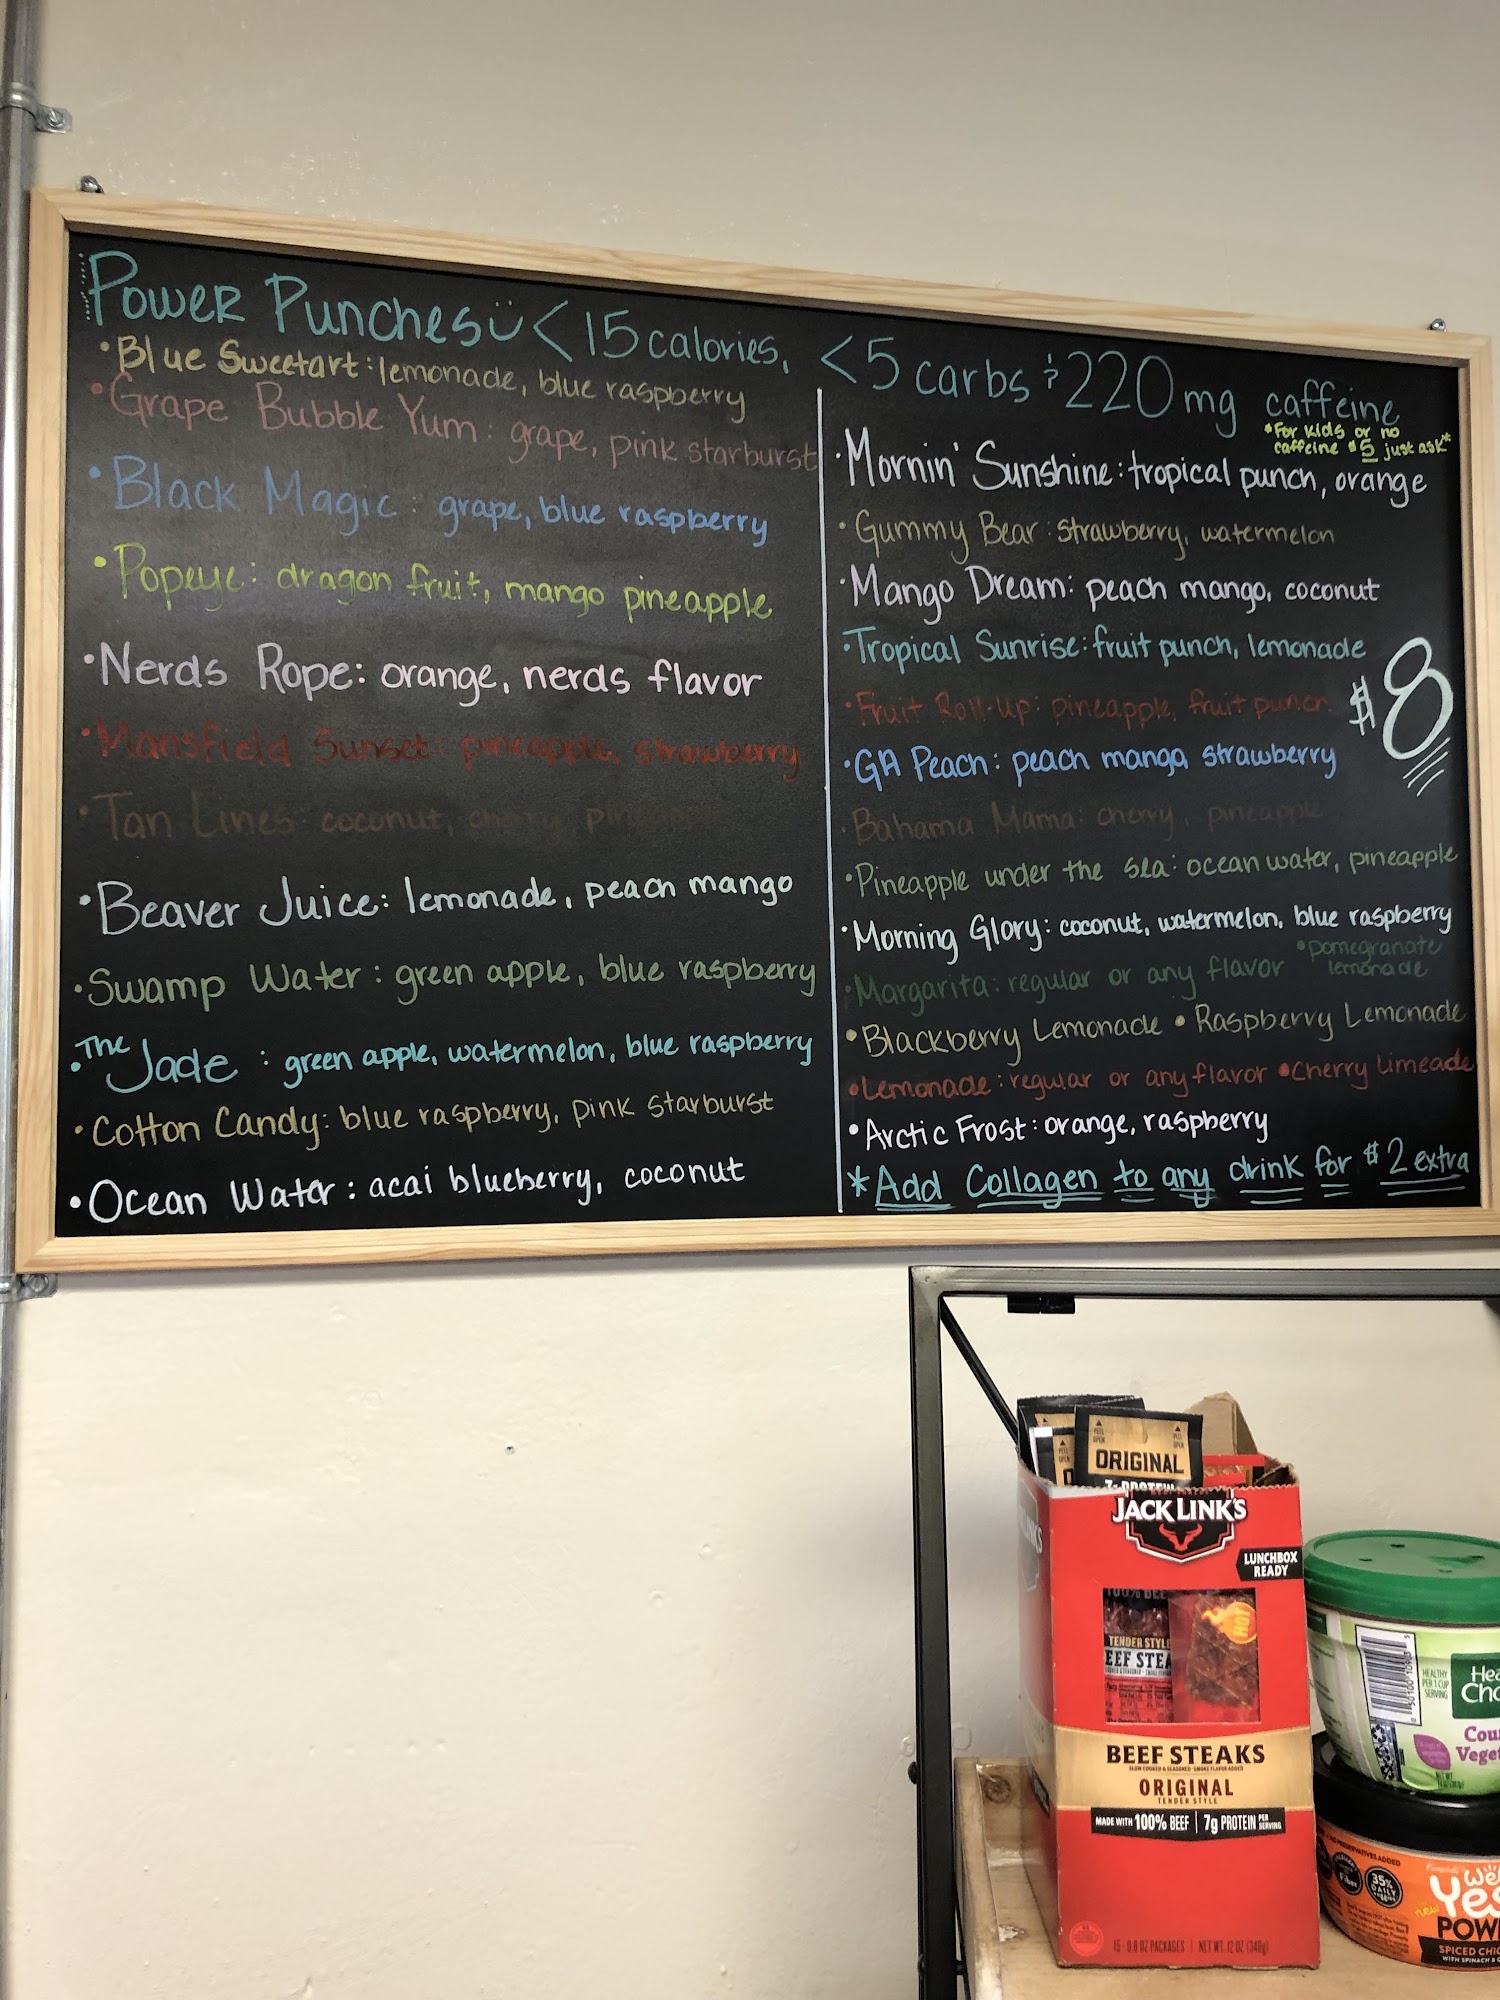 Power Punches <15 calories, <5 carbs & 220 mg caffeine
*For kids or no
caffeine $5 just ask*
•Blue Sweetart: lemonade, blue raspberry
•Grape Bubble Yum: grape, pink starburst
•Black Magic: grape, blue raspberry
•Popeye: dragon fruit, mango pineapple
•Nerds Rope: orange, nerds flavor
•Mansfield Sunset: pineapple, strawberry
•Tan Lines: coconut, cherry, pineapple
•Beaver Juice: lemonade, peach mango
•Swamp Water: green apple, blue raspberry
•The Jade: green apple, watermelon, blue raspberry
•Cotton Candy: blue raspberry, pink starburst
•Ocean Water: acai blueberry, coconut
•Mornin' Sunshine: tropical punch, orange
•Gummy Bear: strawberry, watermelon
•Mango Dream: peach mango, coconut
•Tropical Sunrise: fruit punch, lemonade
•Fruit Roll-Up: pineapple, fruit punch
$8
•GA Peach: peach mango, strawberry
•Bahama Mama: cherry, pineapple
•Pineapple under the sea: ocean water, pineapple
•Morning Glory: coconut, watermelon, blue raspberry
•Margarita: regular or any flavor
•pomegranate
lemonade
•Blackberry Lemonade •Raspberry Lemonade
•Lemonade: regular or any flavor •Cherry Limeade
•Arctic Frost: orange, raspberry
*Add Collagen to any drink for $2 extra
PEEL
OPEN
ORIGINAL
7g PROTEIN
JACK LINK'S
LUNCHBOX
READY
100% BEEF
HOT
TENDER STYLE
BEEF STEA
BEEF STEAKS
SLOW COOKED & SEASONED · SMOKE FLAVOR ADDED
ORIGINAL
TENDER STYLE
MADE WITH 100% BEEF | 7g PROTEIN PER SERVING
15 - 0.8 OZ PACKAGES | NET WT. 12 OZ (340g)
HEALTHY
PER 1 CUP
SERVING
Hea
Cho
Cou
Veget
NO PRESERVATIVES ADDED
Fiber
35%
DAILY
Campbell's
Well
Yes
new
POW
SPICED CHIC
WITH SPINACH &